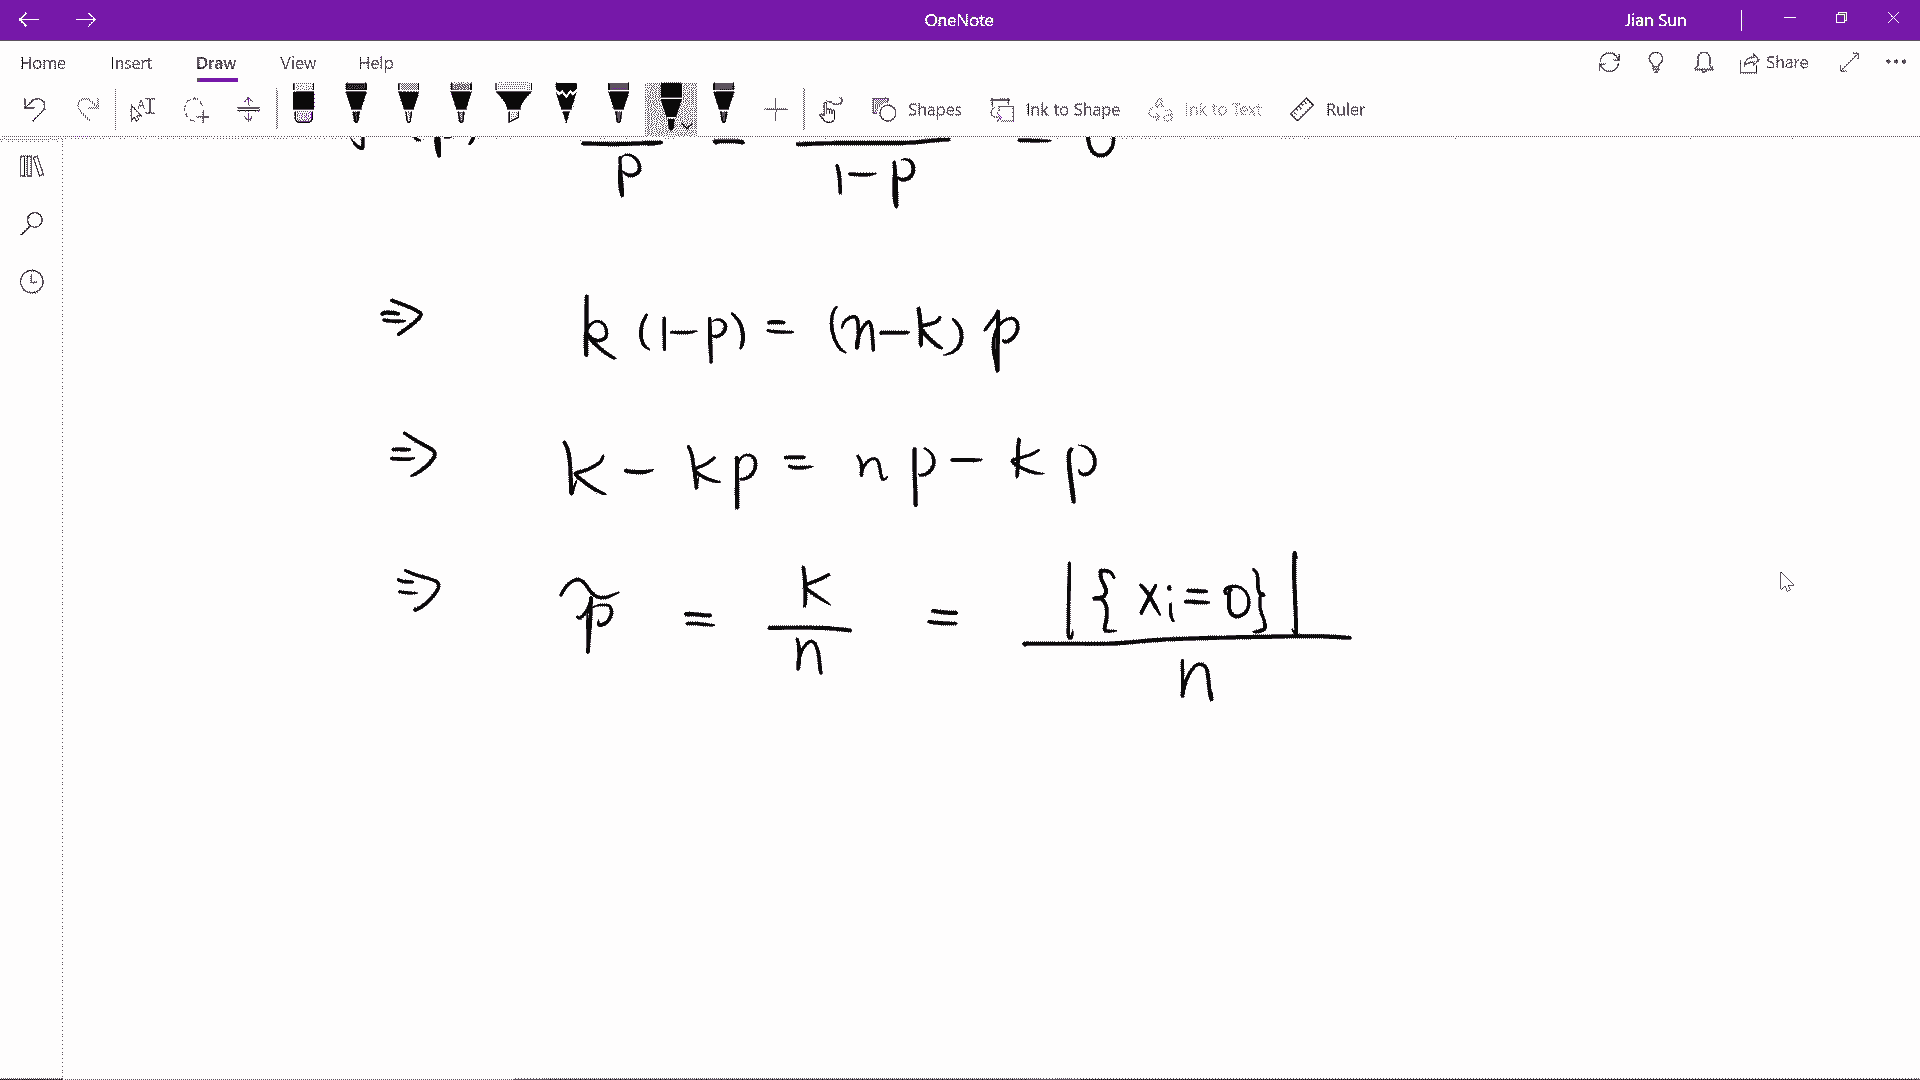 OneNote
Jian Sun
Home Insert Draw View Help
Share
Shapes Ink to Shape Ink to Text Ruler
p 1-p = 0
⇒ k (1-p) = (n-k) p
⇒ k - kp = np - kp
⇒ p̃ = k/n = |{xi=0}|/n